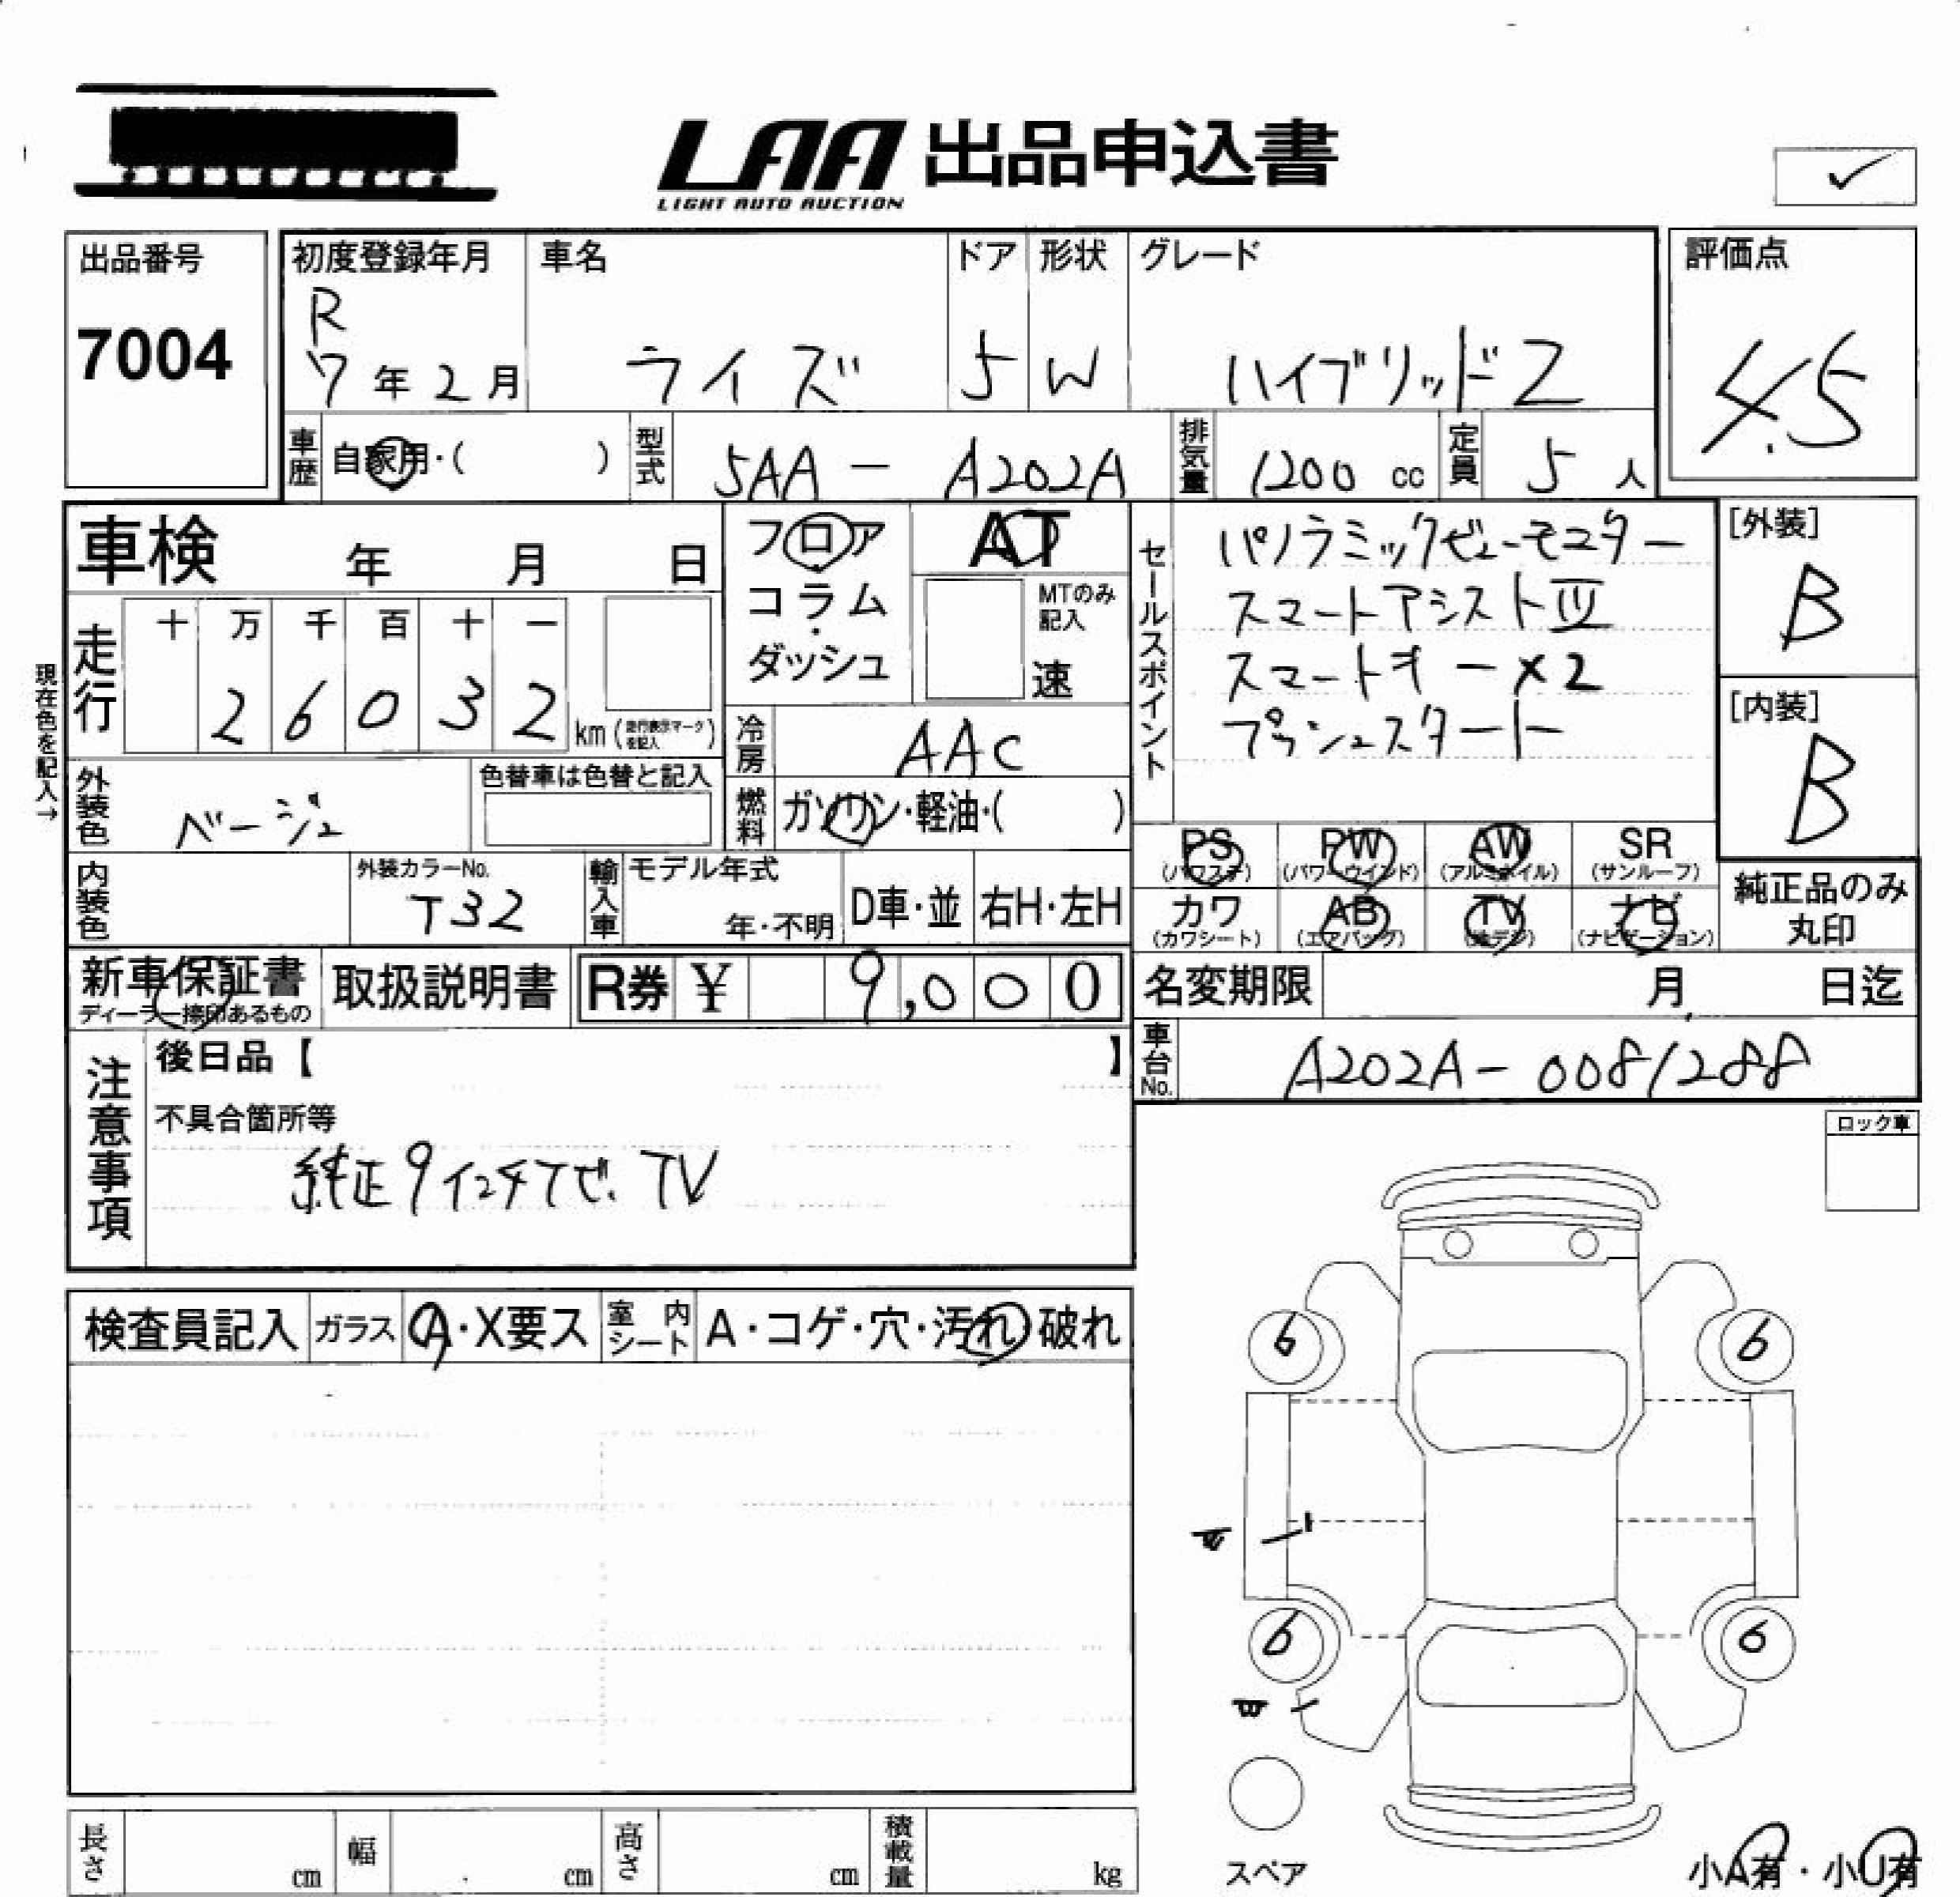 LAA 出品申込書
LIGHT AUTO AUCTION
✓
出品番号
7004
初度登録年月
R
7年2月
車名
ライズ
ドア
5
形状
W
グレード
ハイブリッドZ
評価点
4.5
車歴
自家用・( )
型式
5AA - A202A
排気量
1200 cc
定員
5 人
車検 年 月 日
フロア
コラム
・
ダッシュ
AT
MTのみ
記入
速
セールスポイント
パノラミックビューモニター
スマートアシストⅣ
スマートキー×2
プッシュスタート
[外装]
B
[内装]
B
現在色を記入→
走行
十 万 千 百 十 一
2 6 0 3 2
km (走行表示マークを記入)
冷房
AAC
外装色
ベージュ
色替車は色替と記入
燃料
ガソリン・軽油・( )
PS
(パワステ)
PW
(パワーウインド)
AW
(アルミホイル)
SR
(サンルーフ)
カワ
(カワシート)
AB
(エアバック)
TV
(地デジ)
ナビ
(ナビゲーション)
純正品のみ
丸印
内装色
外装カラーNo.
T32
輸入車
モデル年式
年・不明
D車・並
右H・左H
新車保証書
ディーラー捺印あるもの
取扱説明書
R券 ¥ 9,000
名変期限 月 日迄
車台No.
A202A-0081288
注意事項
後日品【 】
不具合箇所等
純正9インチナビ. TV
ロック車
検査員記入
ガラス
A・X要ス
室内シート
A・コゲ・穴・汚れ・破れ
6
6
6
6
スペア
小A有・小U有
長さ
cm
幅
cm
高さ
cm
積載量
kg